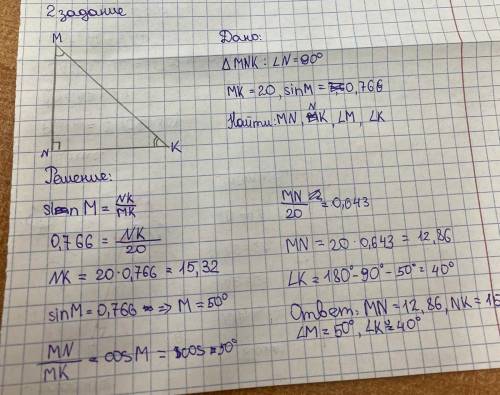 2 задание
M
N
K
Дано:
△MNK : ∠N = 90°
MK = 20, sinM = 0,766
Найти: MN, NK, ∠M, ∠K
Решение:
sin M = NK/MK
0,766 = NK/20
NK = 20·0,766 = 15,32
sinM = 0,766 ⇒ M = 50°
MN/MK = cos M = cos 50°
MN/20 = 0,643
MN = 20·0,643 = 12,86
∠K = 180°-90°-50° = 40°
Ответ: MN = 12,86, NK = 15
∠M = 50°, ∠K = 40°